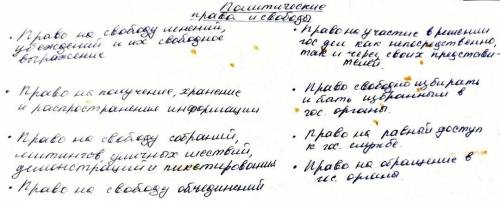 Политические
права и свободы
• Право на свободу мнений,
убеждений и их свободное
выражение
• Право на получение, хранение
и распространение информации
• Право на свободу собраний,
митингов, уличных шествий,
демонстраций и пикетирования
• Право на свободу объединений
• Право на участие в решении
гос дел как непосредственно,
так и через своих представи-
телей.
• Право свободно избирать
и быть избранным в
гос. органы.
• Право на равный доступ
к гос. службе.
• Право на обращение в
гос. органы